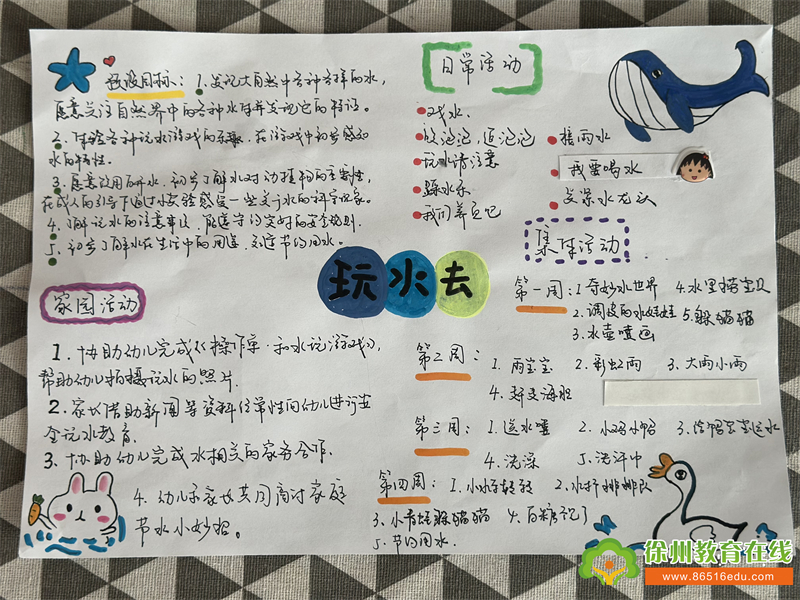 预设目标：1.发现大自然中各种各样的水，
愿意关注自然界中的各种水并发现它的特征。
2.体验各种玩水游戏的乐趣，在游戏中初步感知
水的特性。
3.愿意饮用白开水，初步了解水对动植物的重要性，
在成人的引导下通过小实验感受一些关于水的科学现象。
4.了解玩水的注意事项，能遵守约定好的安全规则.
5.初步了解水在生活中的用途，知道节约用水。
日常活动
戏水
吹泡泡，追泡泡
玩水请注意
踩水乐
我们养豆记
接雨水
我要喝水
关紧水龙头
玩水去
集体活动
第一周：1奇妙水世界 4水里捞宝贝
2.调皮的水娃娃 5.躲猫猫
3.水壶喷画
第二周：1.雨宝宝 2.彩虹雨 3.大雨小雨
4.好玩海胆
第三周：1.运水喽 2.小鸡小鸭 3.给鸭宝宝运水
4.洗澡 5.洗汗巾
第四周：1.小水轮转转 2.水杯排排队
3.小青蛙躲猫猫 4.白糖不见了
5.节约用水.
家园活动
1.协助幼儿完成《操作单·和水玩游戏》，
帮助幼儿拍摄玩水的照片.
2.家长借助新闻等资料经常性向幼儿进行安
全玩水教育.
3.协助幼儿完成水相关的家务合作.
4.幼儿和家长共同商讨家庭
节水小妙招。
徐州教育在线
www.86516edu.com